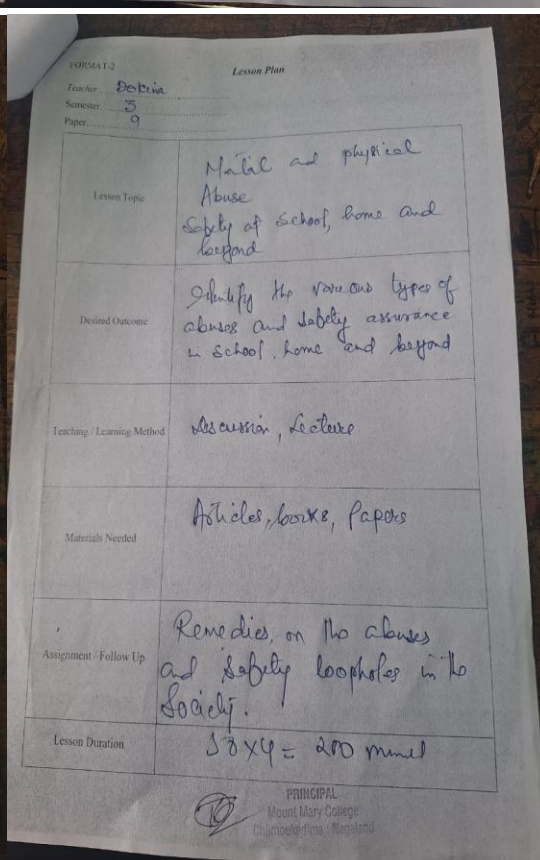 FORMAT-2
Lesson Plan
Teacher
Semester 3
Paper 9
Lesson Topic
and physical
Abuse
Safety at School, home and
beyond
Desired Outcome
Identify the various types of
abuses and safety assurance
in School, home and beyond
Teaching / Learning Method
Discussion, Lecture
Materials Needed
Articles, books, Papers
Assignment / Follow Up
Remedies, on the abuses
and Safety loopholes in the
Society.
Lesson Duration
X4 = 200
PRINCIPAL
Mount Mary College
Nagaland